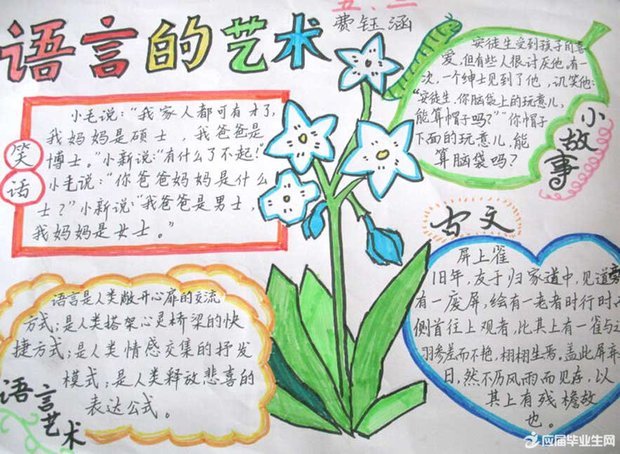 五、三
语言的艺术
费钰涵
笑话
小毛说：“我家人都可有才了，
我妈妈是硕士，我爸爸是
博士。”小新说：“有什么了不起！”
小毛说：“你爸爸妈妈是什么
士？”小新说：“我爸爸是男士，
我妈妈是女士。”
安徒生受到孩子的喜
爱，但有些人很讨厌他，有一
次，一个绅士见到了他，讥笑他：
“安徒生，你脑袋上的玩意儿，
能算帽子吗？”“你帽子
下面的玩意儿，能
算脑袋吗？
小故事
古文
屏上雀
旧年，友于归家道中，见道
有一废屏，绘有一老者时行时
侧首往上观者，比其上有一雀与
羽参差而不艳，栩栩生焉，盖此屏弃
日，然不乃风雨而见存，以
其上有残檐故
也。
语言是人类敞开心扉的交流
方式；是人类搭架心灵桥梁的快
捷方式；是人类情感交集的抒发
模式；是人类释放悲喜的
表达公式。
语言艺术
应届毕业生网